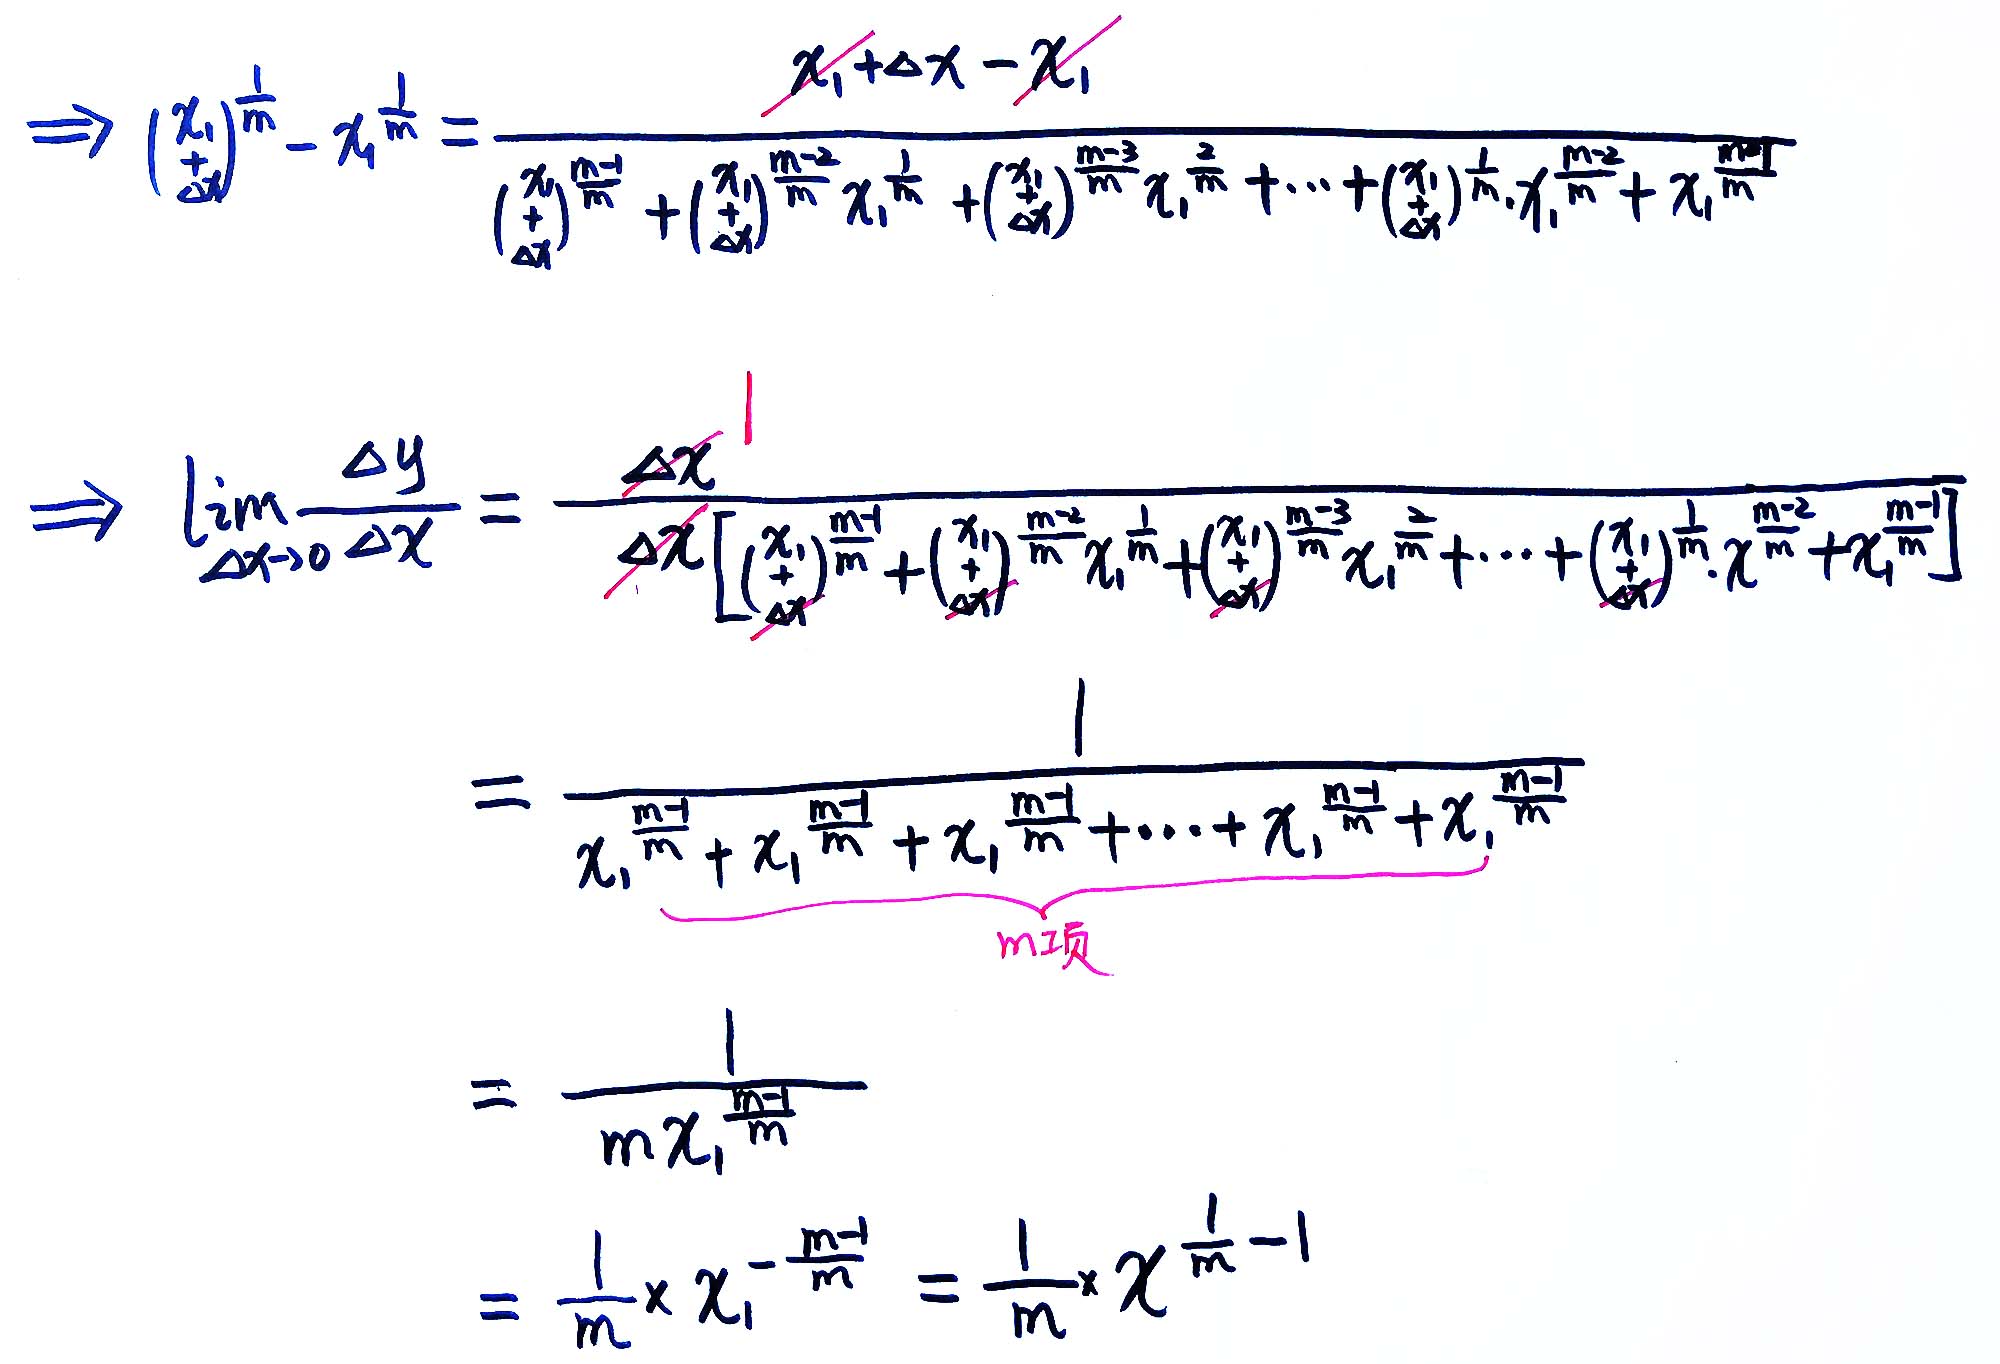 ⇒ (x₁+Δx)^{1/m} − x₁^{1/m} = \frac{x₁+Δx−x₁}{(x₁+Δx)^{\frac{m-1}{m}} + (x₁+Δx)^{\frac{m-2}{m}} x₁^{\frac{1}{m}} + (x₁+Δx)^{\frac{m-3}{m}} x₁^{\frac{2}{m}} + ⋯ + (x₁+Δx)^{\frac{1}{m}} · x₁^{\frac{m-2}{m}} + x₁^{\frac{m-1}{m}}}
⇒ \lim_{Δx→0} \frac{Δy}{Δx} = \frac{Δx \; 1}{Δx[(x₁+Δx)^{\frac{m-1}{m}} + (x₁+Δx)^{\frac{m-2}{m}} x₁^{\frac{1}{m}} + (x₁+Δx)^{\frac{m-3}{m}} x₁^{\frac{2}{m}} + ⋯ + (x₁+Δx)^{\frac{1}{m}} · x^{\frac{m-2}{m}} + x₁^{\frac{m-1}{m}}]}
= \frac{1}{x₁^{\frac{m-1}{m}} + x₁^{\frac{m-1}{m}} + x₁^{\frac{m-1}{m}} + ⋯ + x₁^{\frac{m-1}{m}} + x₁^{\frac{m-1}{m}}}
m项
= \frac{1}{m x₁^{\frac{m-1}{m}}}
= \frac{1}{m} × x₁^{-\frac{m-1}{m}} = \frac{1}{m} × x^{\frac{1}{m}-1}